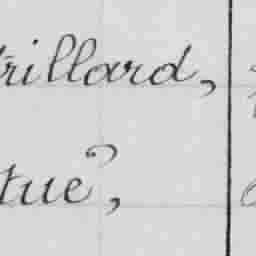 rillard,
tue,